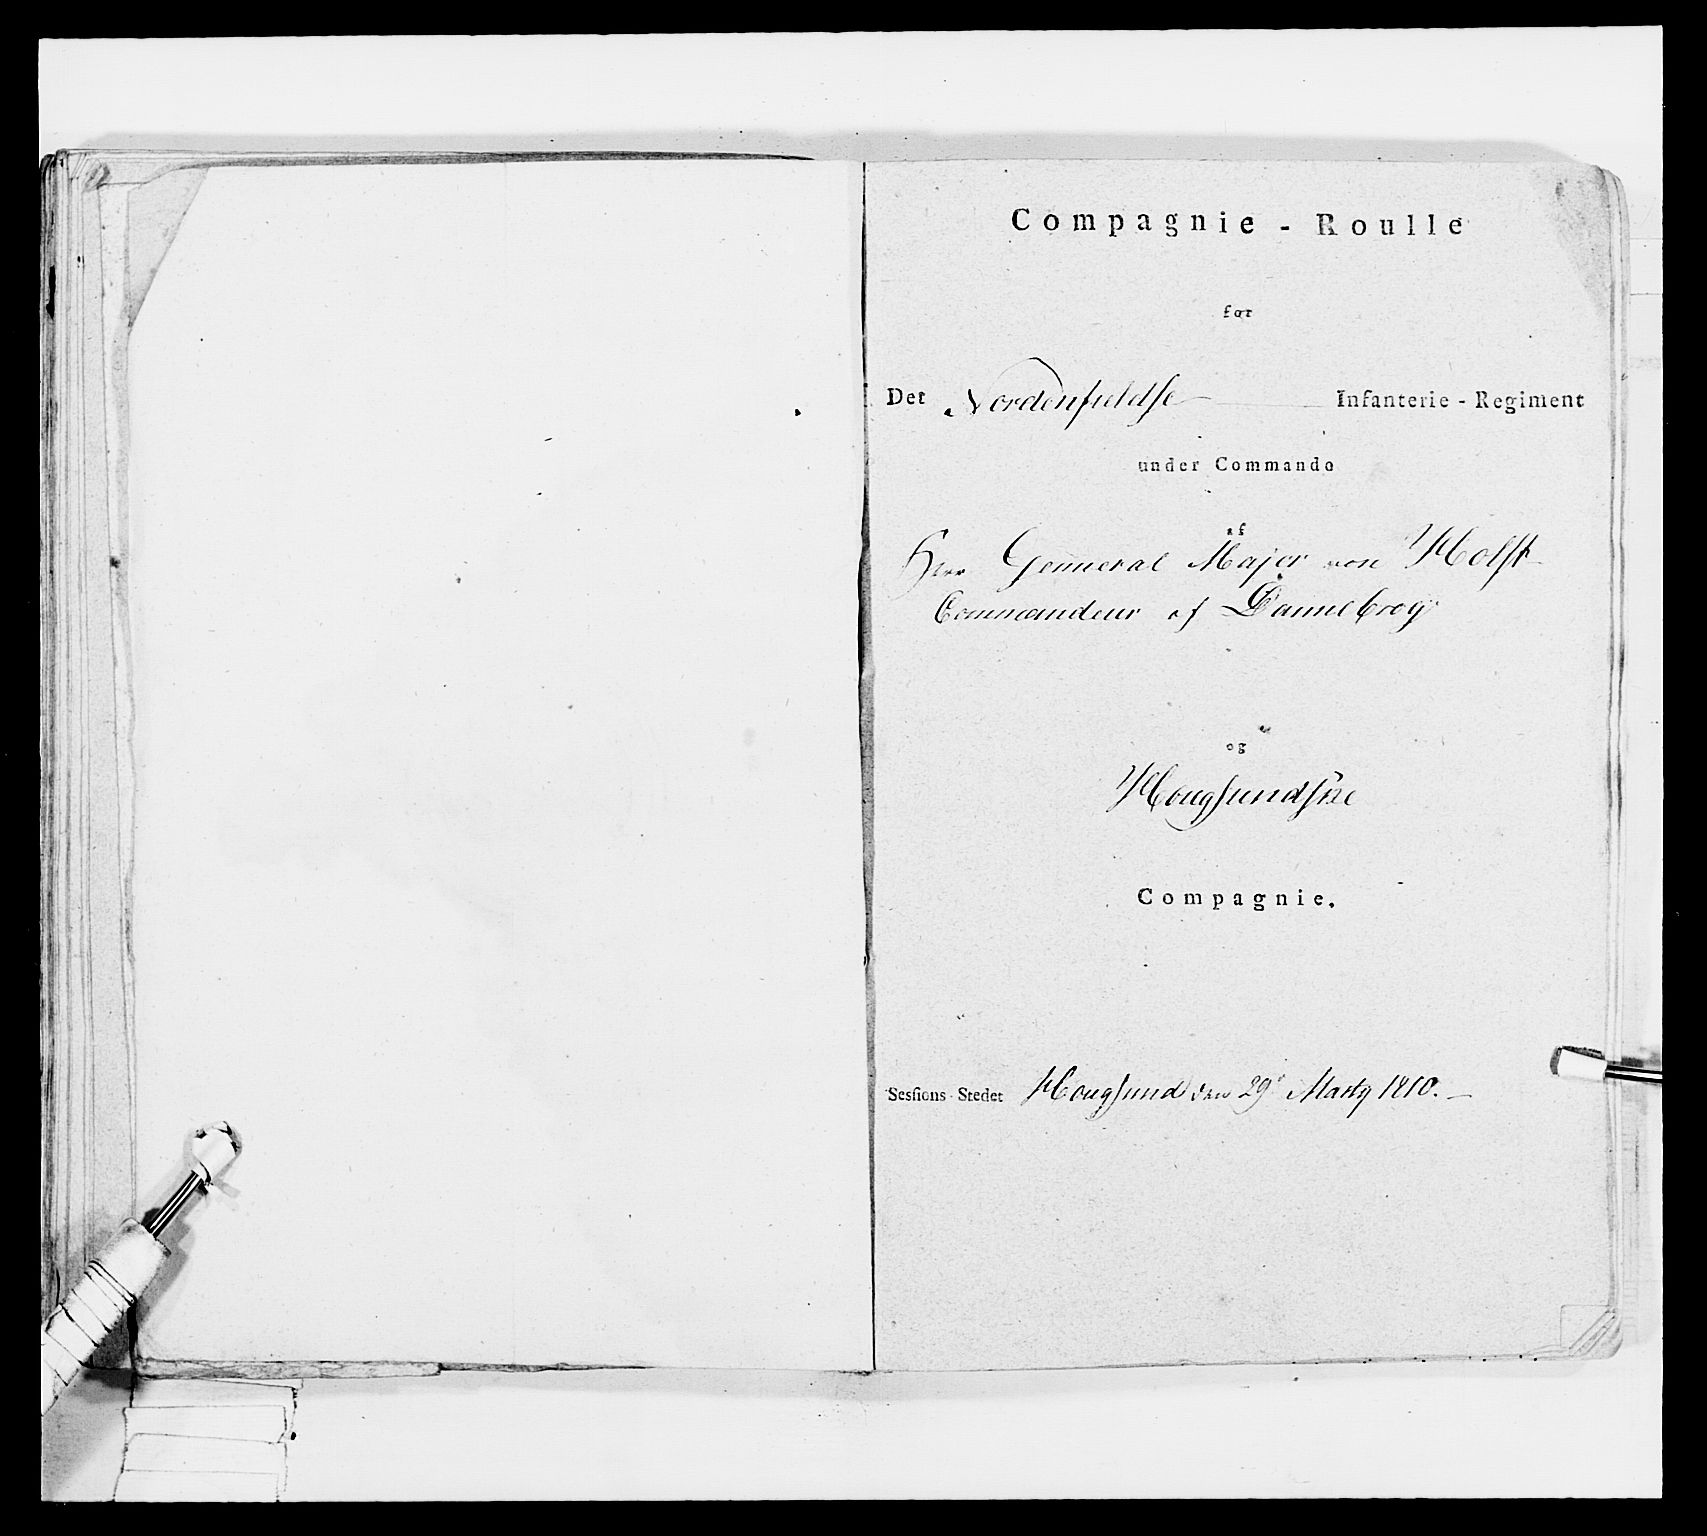 Compagnie - Roulle
for
Det Nordenfieldse Infanterie - Regiment
under Commando
af
Herr Genneral Major von Holst
Commandeur af Dannebrog
og
Hougsundske
Compagnie.
Sesſions-Stedet Hougsund den 29de Marty 1810. —